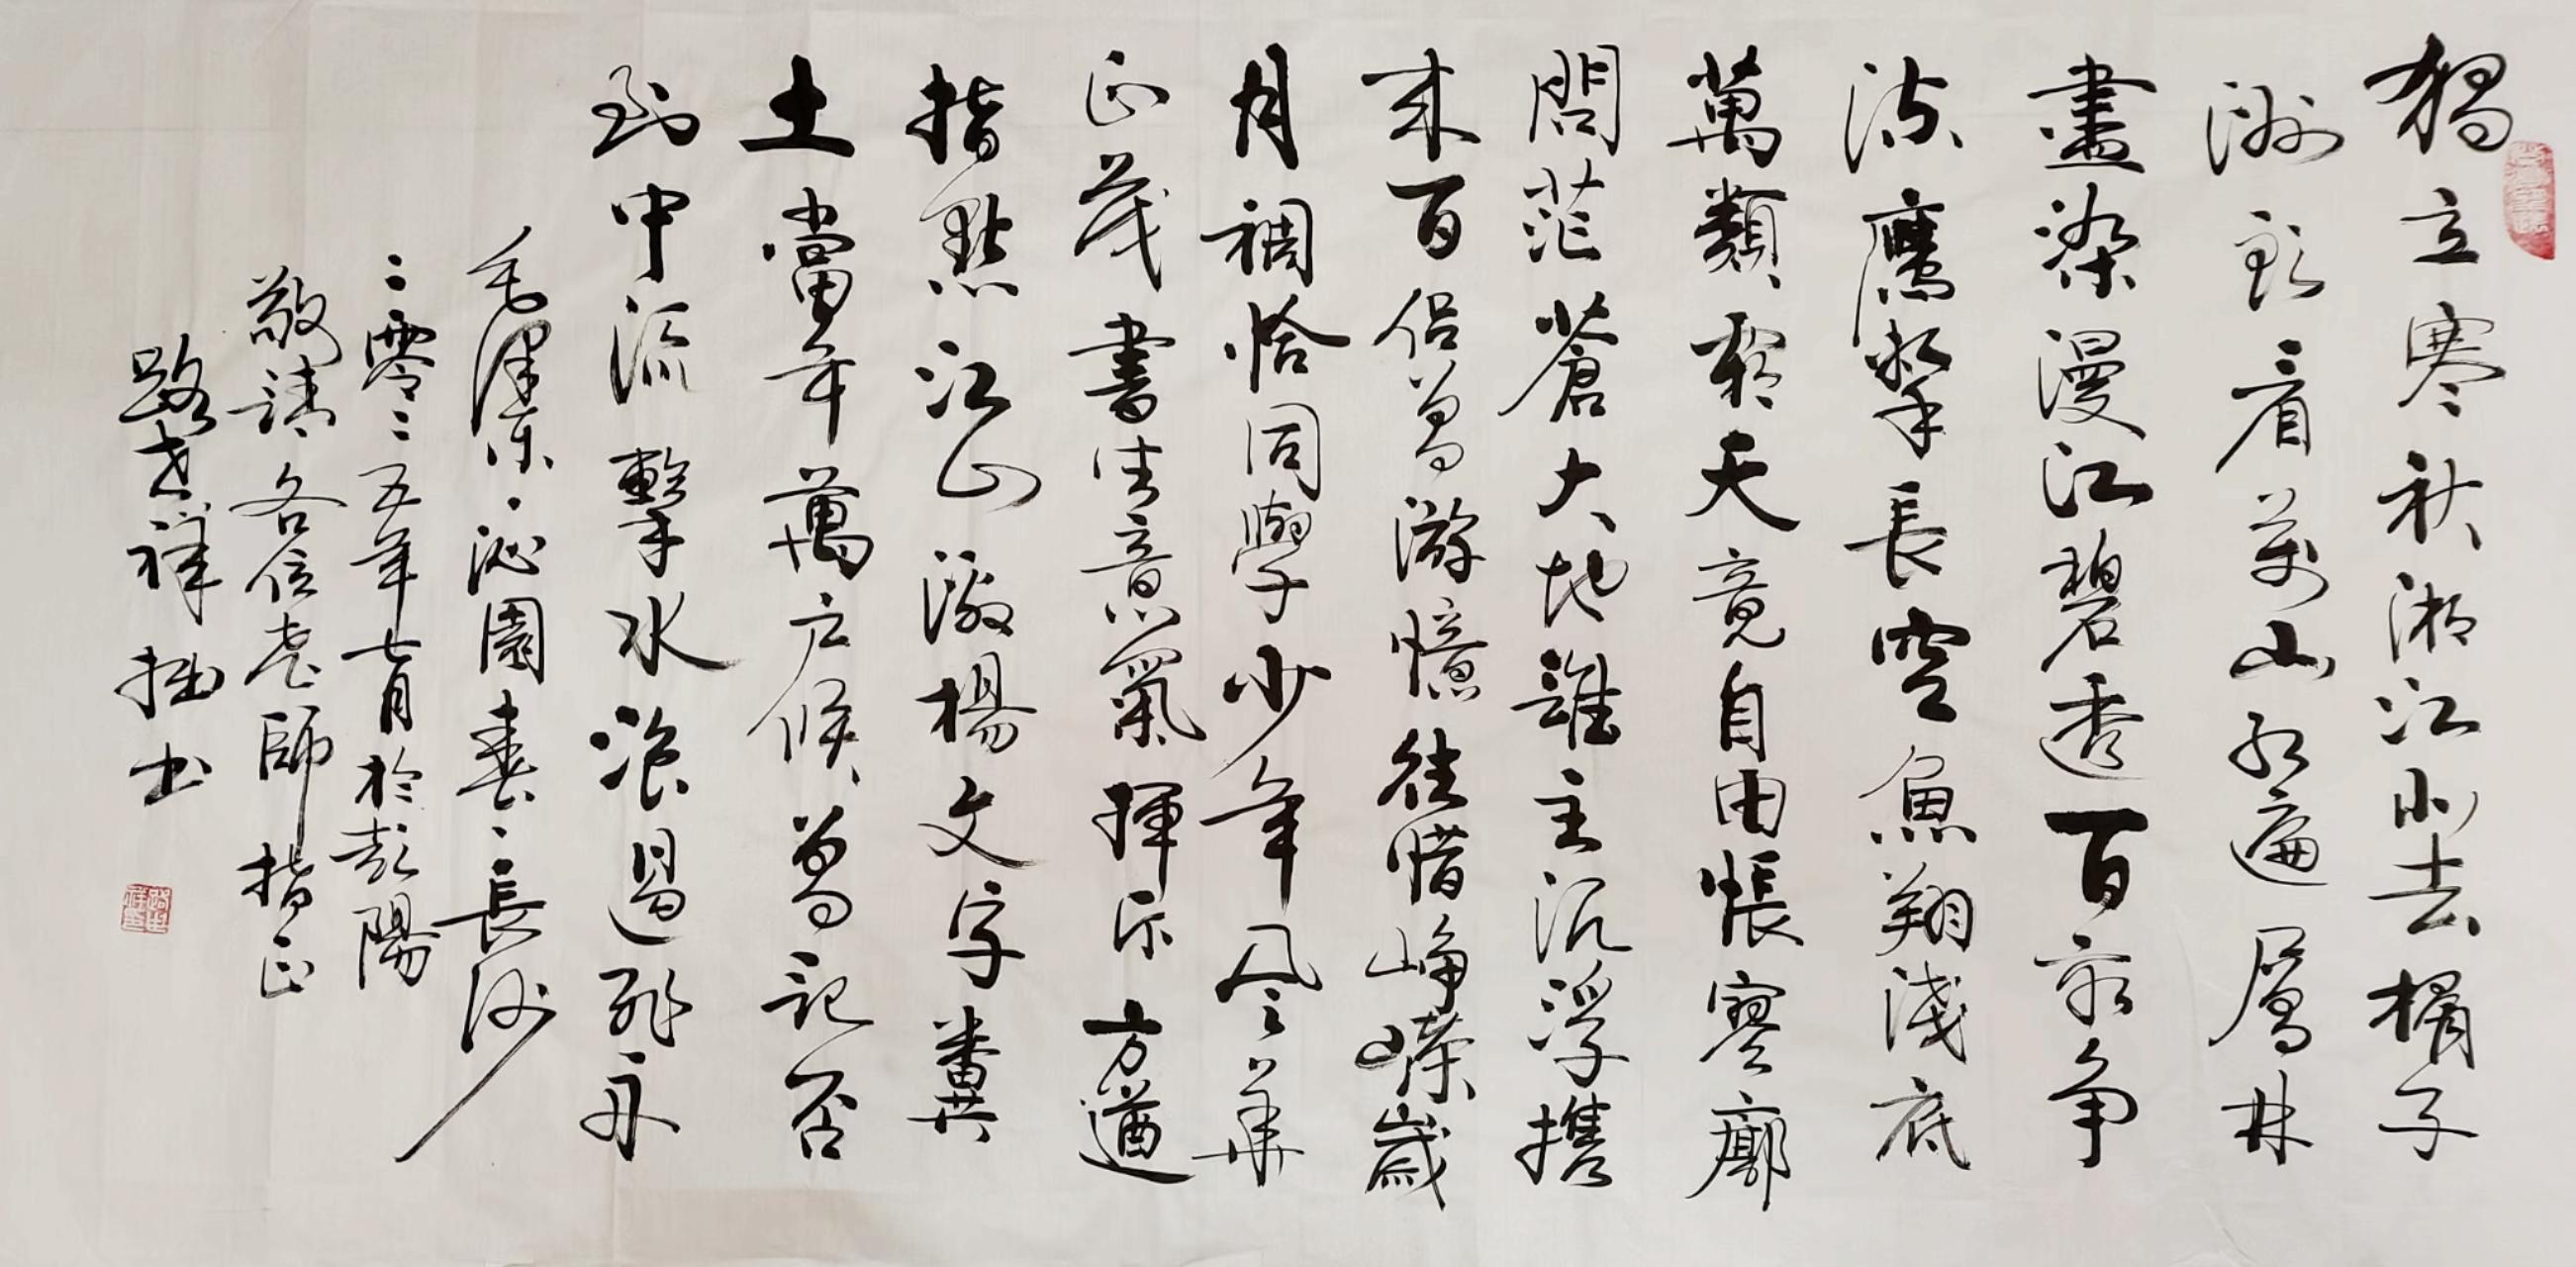 獨立寒秋湘江北去橘子
洲頭看萬山紅遍層林
盡染漫江碧透百舸争
流鷹擊長空魚翔淺底
萬類霜天競自由悵寥廓
問茫蒼大地誰主沉浮攜
来百侣曾游憶往惜崢嶸歲
月稠恰同學少年風華
正茂書生意氣揮斥方遒
指點江山激揚文字糞
土當年萬户侯曾記否
到中流擊水浪遏飛舟
毛澤東·沁園春·長沙
二零二五年七月於彭陽
敬請各位老師指正
路志祥拙书